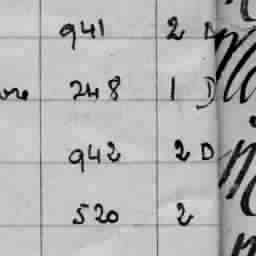 941 2 D
248 1 D
942 2 D
520 2